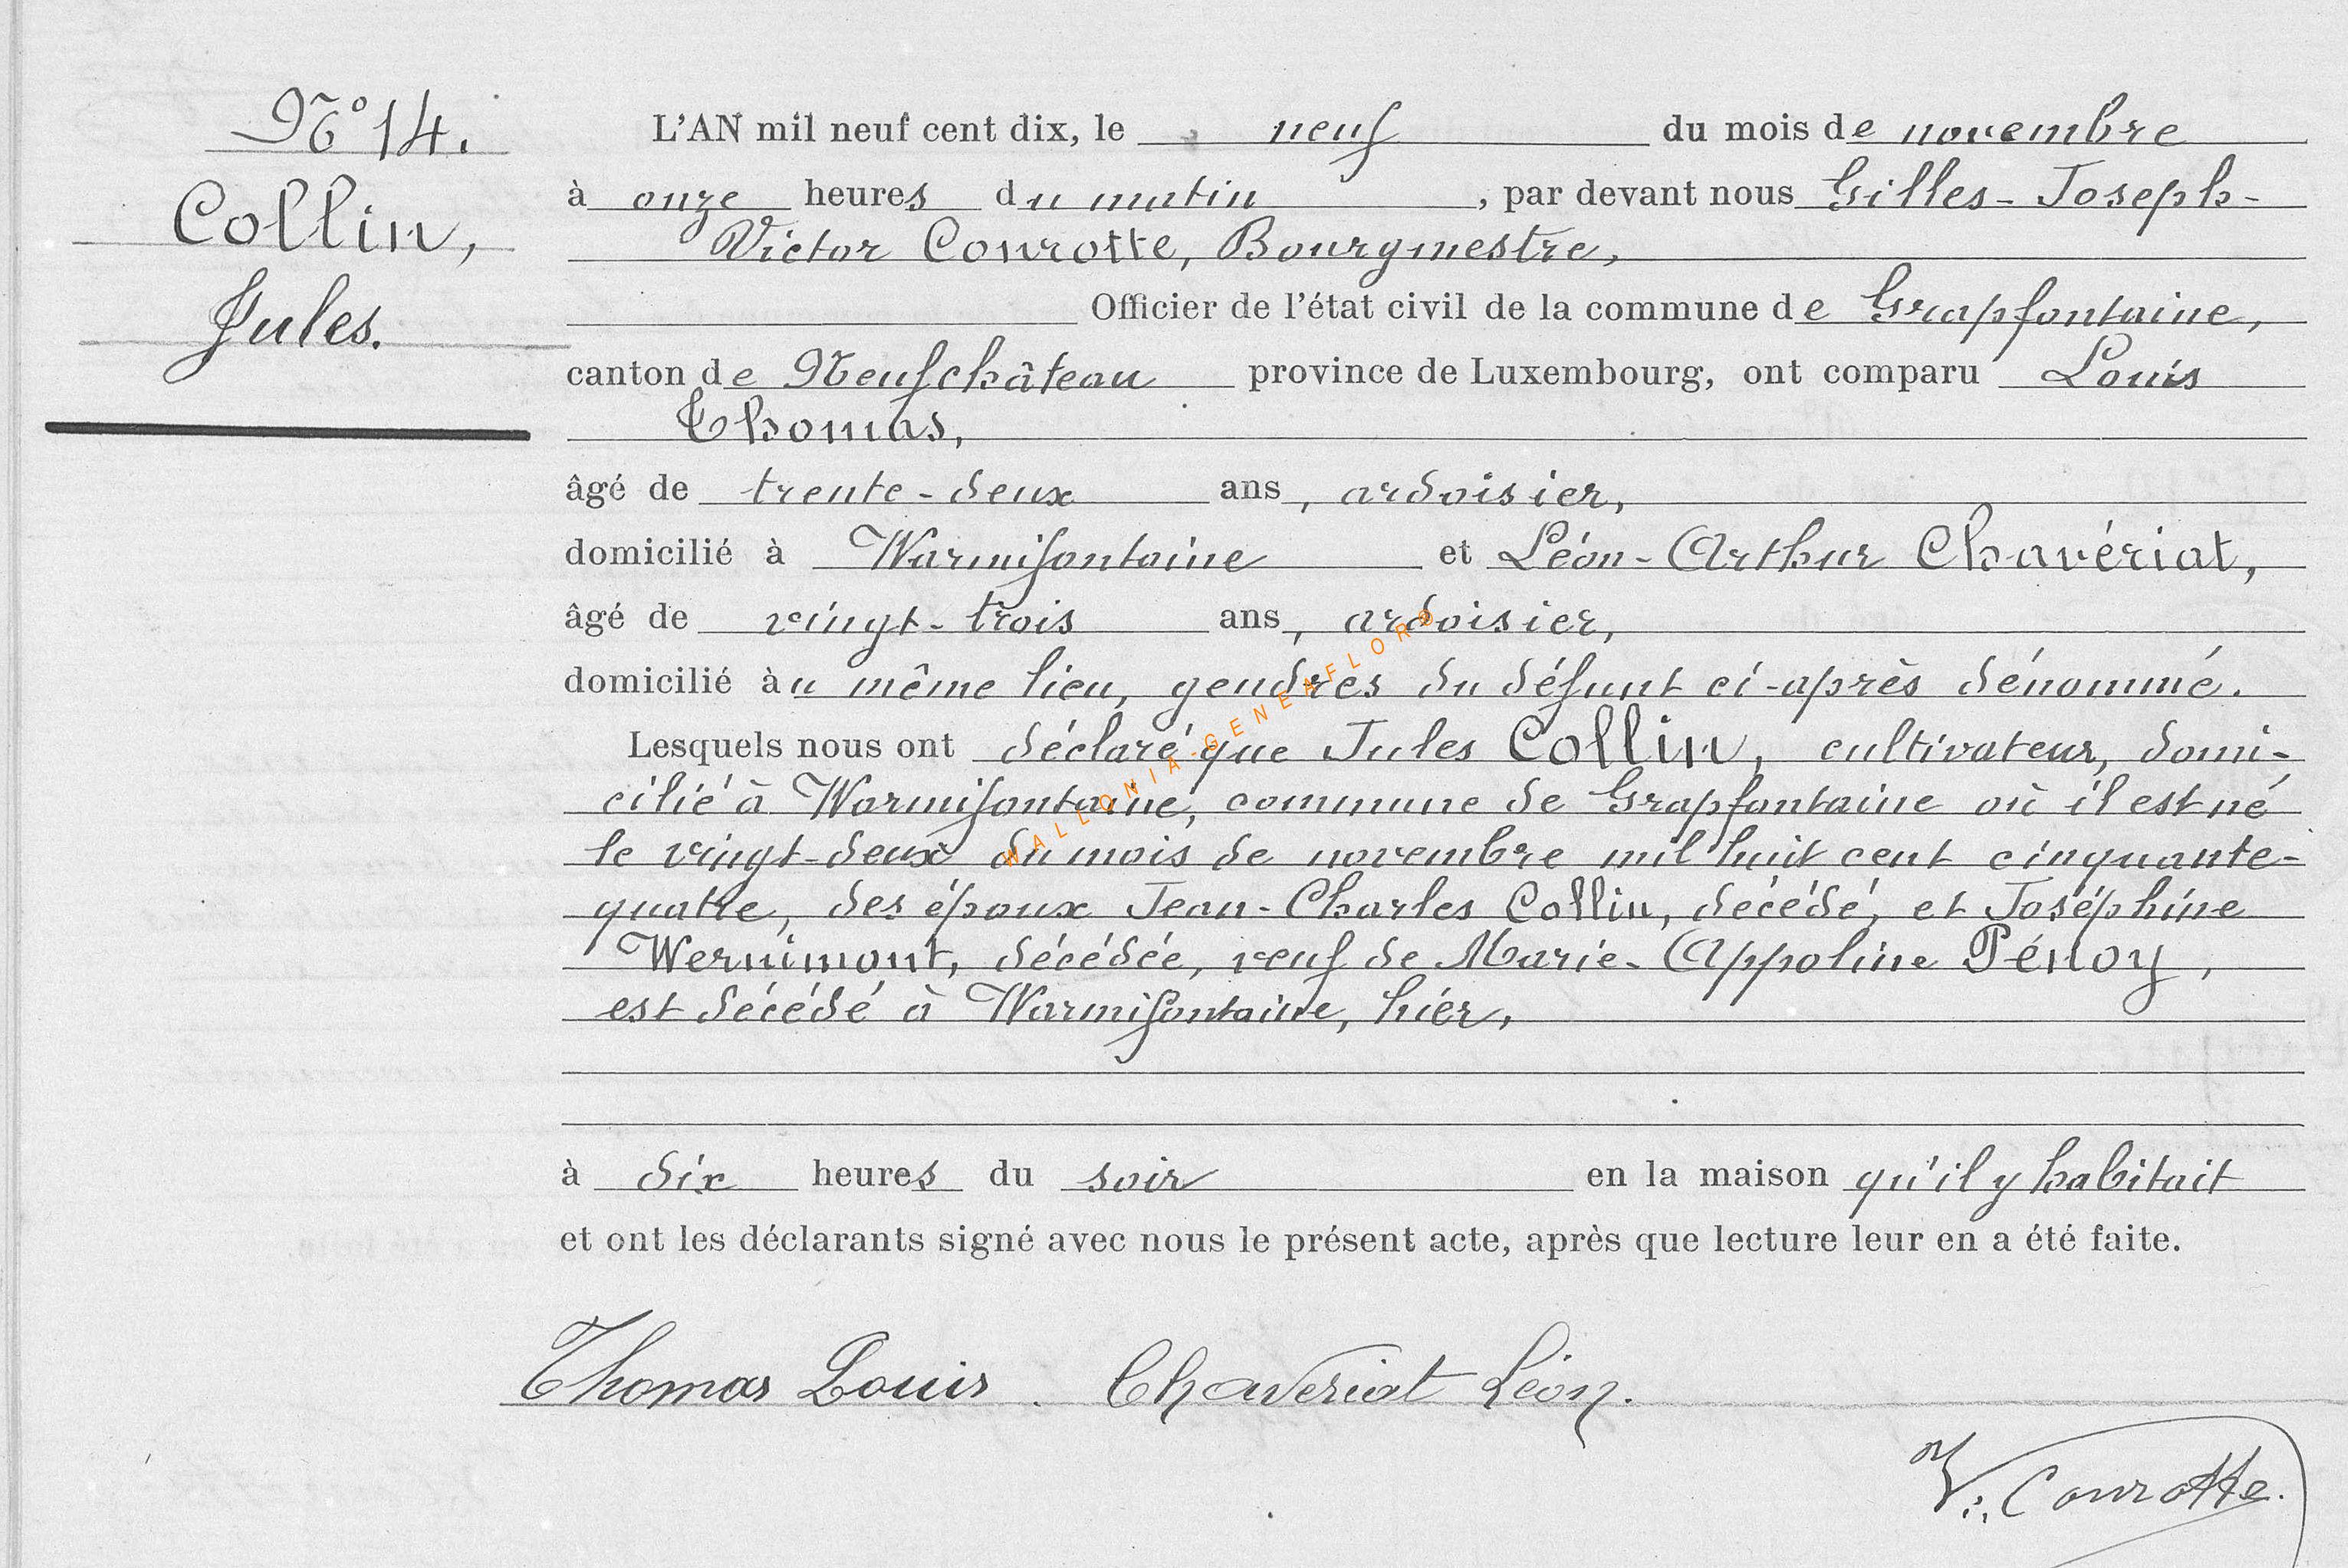 N° 14.
Collin,
Jules.
L'AN mil neuf cent dix, le neuf du mois de novembre
à onze heures du matin, par devant nous Gilles-Joseph-
Victor Conrotte, Bourgmestre,
Officier de l'état civil de la commune de Grapfontaine,
canton de Neufchâteau province de Luxembourg, ont comparu Louis
Thomas,
âgé de trente-deux ans, ardoisier,
domicilié à Warmifontaine et Léon-Arthur Chavériat,
âgé de vingt-trois ans, ardoisier,
domicilié au même lieu, gendres du défunt ci-après dénommé.
Lesquels nous ont déclaré que Jules Collin, cultivateur, domi-
cilié à Warmifontaine, commune de Grapfontaine où il est né
le vingt-deux du mois de novembre mil huit cent cinquante-
quatre, des époux Jean-Charles Collin, décédé, et Joséphine
Wernimont, décédée, veuf de Marie-Appoline Pénoy,
est décédé à Warmifontaine, hier,
à dix heures du soir en la maison qu'il y habitait
et ont les déclarants signé avec nous le présent acte, après que lecture leur en a été faite.
Thomas Louis. Chaveriat Léon.
V. Conrotte.
WALLONIA-GENEAFLORE